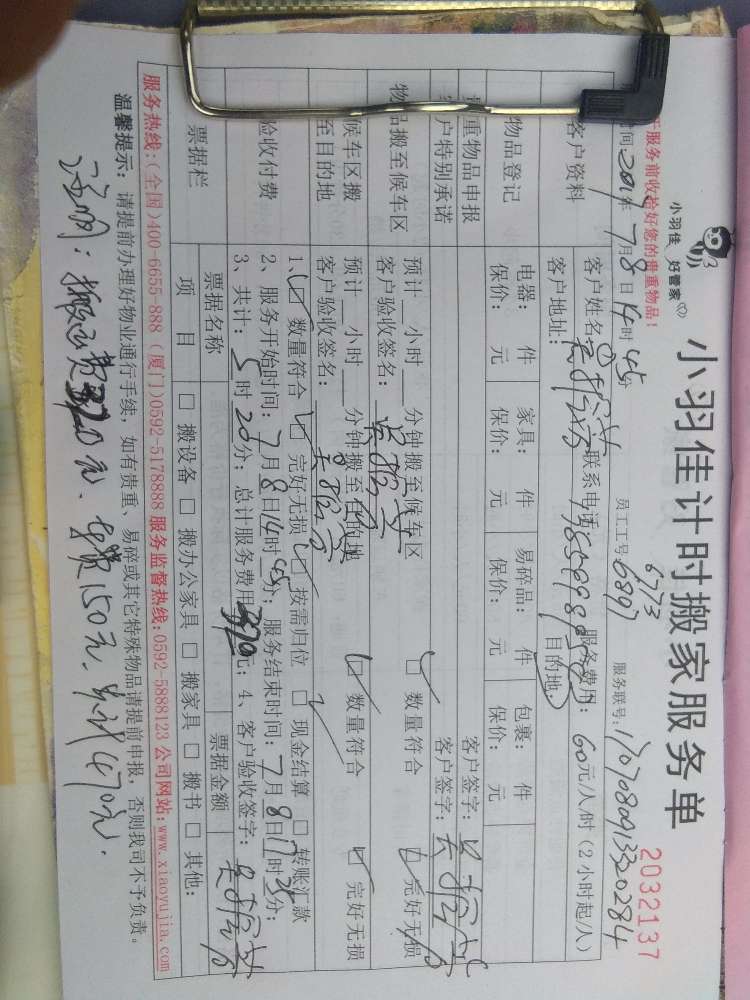 小羽佳 好管家
小羽佳计时搬家服务单
2032137
服务前收拾好您的贵重物品！
员工工号：6773 6897
服务联号：1707080913320284
间：2017年7月8日14时45分
客户资料
客户姓名 联系电话 服务费用：60元/人/时（2小时起/人）
客户地址： 目的地：
物品登记
电器： 件 家具： 件 易碎品： 件 包裹： 件
保价： 元 保价： 元 保价： 元 保价： 元
重物品申报 客户签字：
户特别承诺 客户签字：
物品搬至候车区
预计 小时 分钟搬至候车区 □ 数量符合 □ 完好无损
客户验收签名：
候车区搬至目的地
预计 小时 分钟搬至目的地 □ 数量符合 □ 完好无损
客户验收签名：
验收付费
1、□ 数量符合 □ 完好无损 □ 按需归位 □ 现金结算 □ 转账汇款
2、服务开始时间：7月8日14时45分；服务结束时间：7月8日17时 分；
3、共计：5时20分；总计服务费用320元；4、客户验收签字：
票据栏
票据名称 票据金额
项 目 □ 搬设备 □ 搬办公家具 □ 搬家具 □ 搬书 □ 其他：
服务热线：(全国)400-6655-888 (厦门)0592-5178888 服务监督热线：0592-5888123 公司网站：www.xiaoyujia.com
温馨提示：请提前办理好物业通行手续，如有贵重、易碎或其它特殊物品请提前申报，否则我司不予负责。
说明：搬运费320元、车费150元、共计470元.